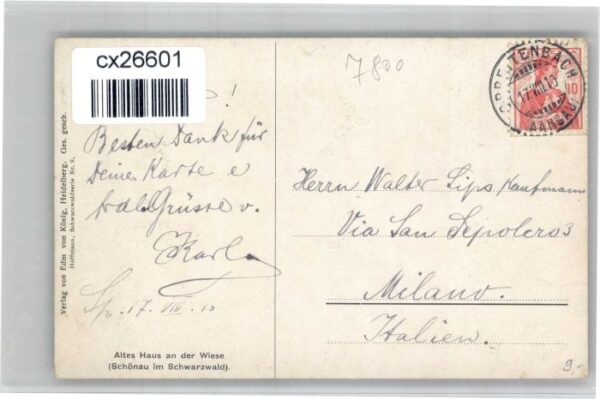 cx26601
7800
SPREITENBACH
17.VIII.10
(AARGAU)
10
!
Besten Dank für
Deine Karte e
Grüsse v.
Karl
Sp. 17. VIII. 10
Herrn Walter Lips, Kaufmann
Via San Sepolcro 3
Milano.
Italien.
Verlag von Edm von König, Heidelberg. Ges. gesch.
Hoffmann, Schwarzwaldserie Nr. 8.
Altes Haus an der Wiese
(Schönau im Schwarzwald).
9.-